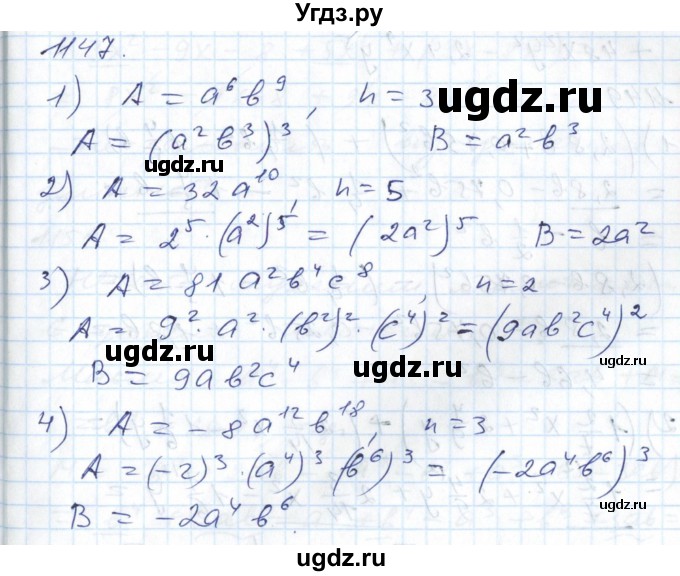 Угдз.ру
1147.
1) A = a⁶b⁹, n = 3
ugdz.ru
A = (a²b³)³ B = a²b³
ugdz.ru ugdz.ru
2) A = 32a¹⁰, n = 5
A = 2⁵·(a²)⁵ = (2a²)⁵ B = 2a²
ugdz.ru
3) A = 81a²b⁴c⁸, n = 2
A = 9²·a²·(b²)²·(c⁴)² = (9ab²c⁴)²
ugdz.ru ugdz.ru
B = 9ab²c⁴
4) A = -8a¹²b¹⁸, n = 3
A = (-2)³·(a⁴)³·(b⁶)³ = (-2a⁴b⁶)³
ugdz.ru
B = -2a⁴b⁶
ugdz.ru